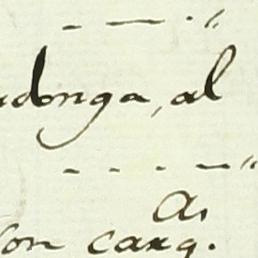 - — · "
udonga, al
- - - - — "
A.
son carg.